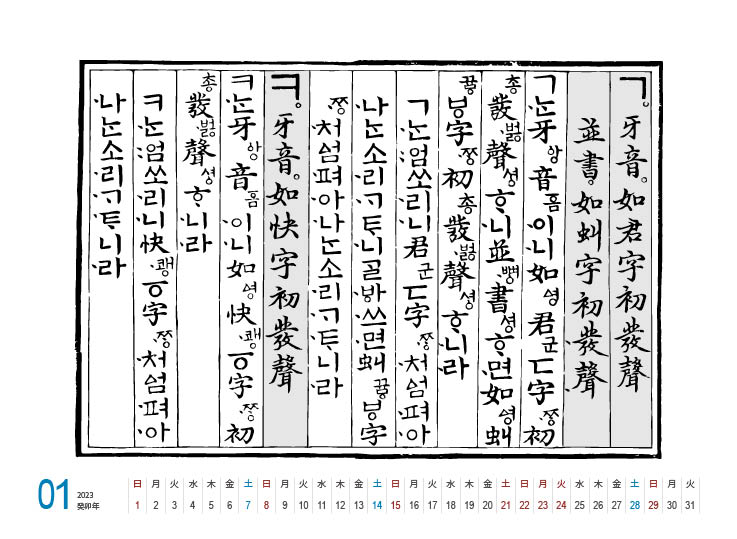 ㄱ。牙音。如君字初發聲
並書。如虯字初發聲
ㄱᄂᆞᆫ牙ᅌᅡᆼ音ᅙᅳᆷ이니如ᅀᅧᆼ君군ㄷ字ᄍᆞᆼ初
총發벓聲셩ᄒᆞ니並뼝書셩ᄒᆞ면如ᅀᅧᆼ虯
뀨ᇢㅸ字ᄍᆞᆼ初총發벓聲셩ᄒᆞ니라
ㄱᄂᆞᆫ엄쏘리니君군ㄷ字ᄍᆞᆼ처ᅀᅥᆷ펴아
나ᄂᆞᆫ소리ᄀᆞᄐᆞ니ᄀᆞᆯᄫᅡ쓰면虯뀨ᇢㅸ字
ᄍᆞᆼ처ᅀᅥᆷ펴아나ᄂᆞᆫ소리ᄀᆞᄐᆞ니라
ㅋ。牙音。如快字初發聲
ㅋᄂᆞᆫ牙ᅌᅡᆼ音ᅙᅳᆷ이니如ᅀᅧᆼ快쾡ㆆ字ᄍᆞᆼ初
총發벓聲셩ᄒᆞ니라
ㅋᄂᆞᆫ엄쏘리니快쾡ㆆ字ᄍᆞᆼ처ᅀᅥᆷ펴아
나ᄂᆞᆫ소리ᄀᆞᄐᆞ니라
01
2023
癸卯年
日 月 火 水 木 金 土 日 月 火 水 木 金 土 日 月 火 水 木 金 土 日 月 火 水 木 金 土 日 月 火
1 2 3 4 5 6 7 8 9 10 11 12 13 14 15 16 17 18 19 20 21 22 23 24 25 26 27 28 29 30 31